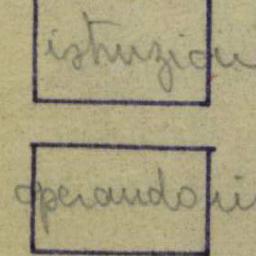 istruzioni
operandoni